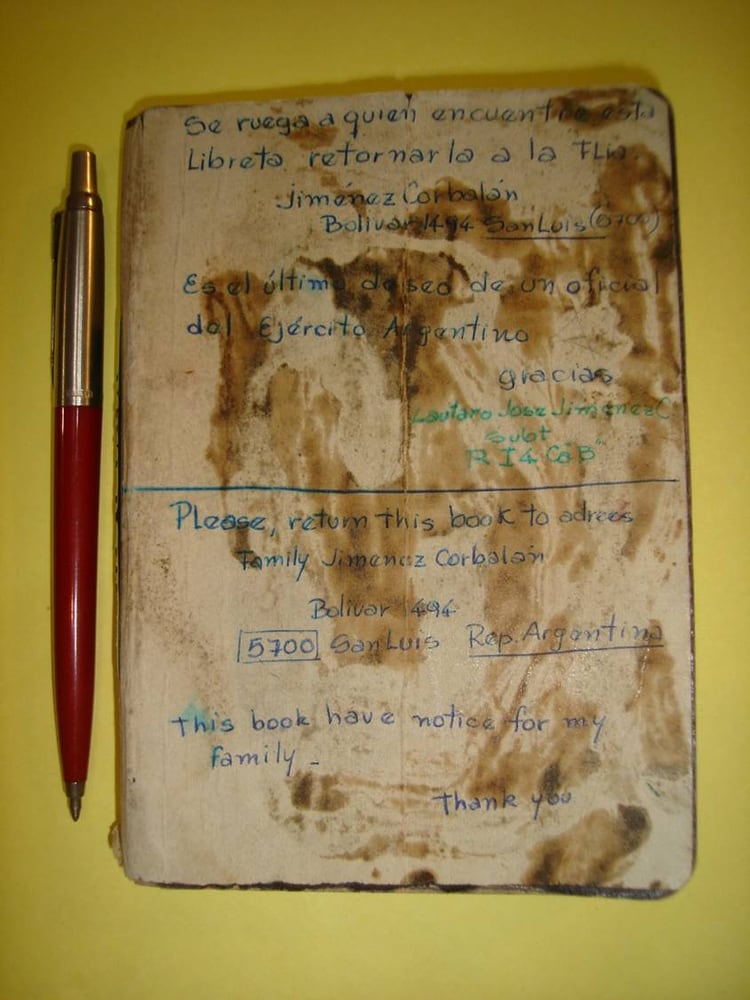 Se ruega a quien encuentre esta
Libreta retornarla a la FLia.
Jiménez Corbalán
Bolivar 1494 San Luis (5700)
Es el último deseo de un oficial
del Ejército Argentino
gracias
Lautaro Jose Jimenez C
Subt
RI4 Ca B"
Please, return this book to adrees
Family Jimenez Corbalán
Bolivar 1494
5700 San Luis Rep. Argentina
this book have notice for my
family -
thank you